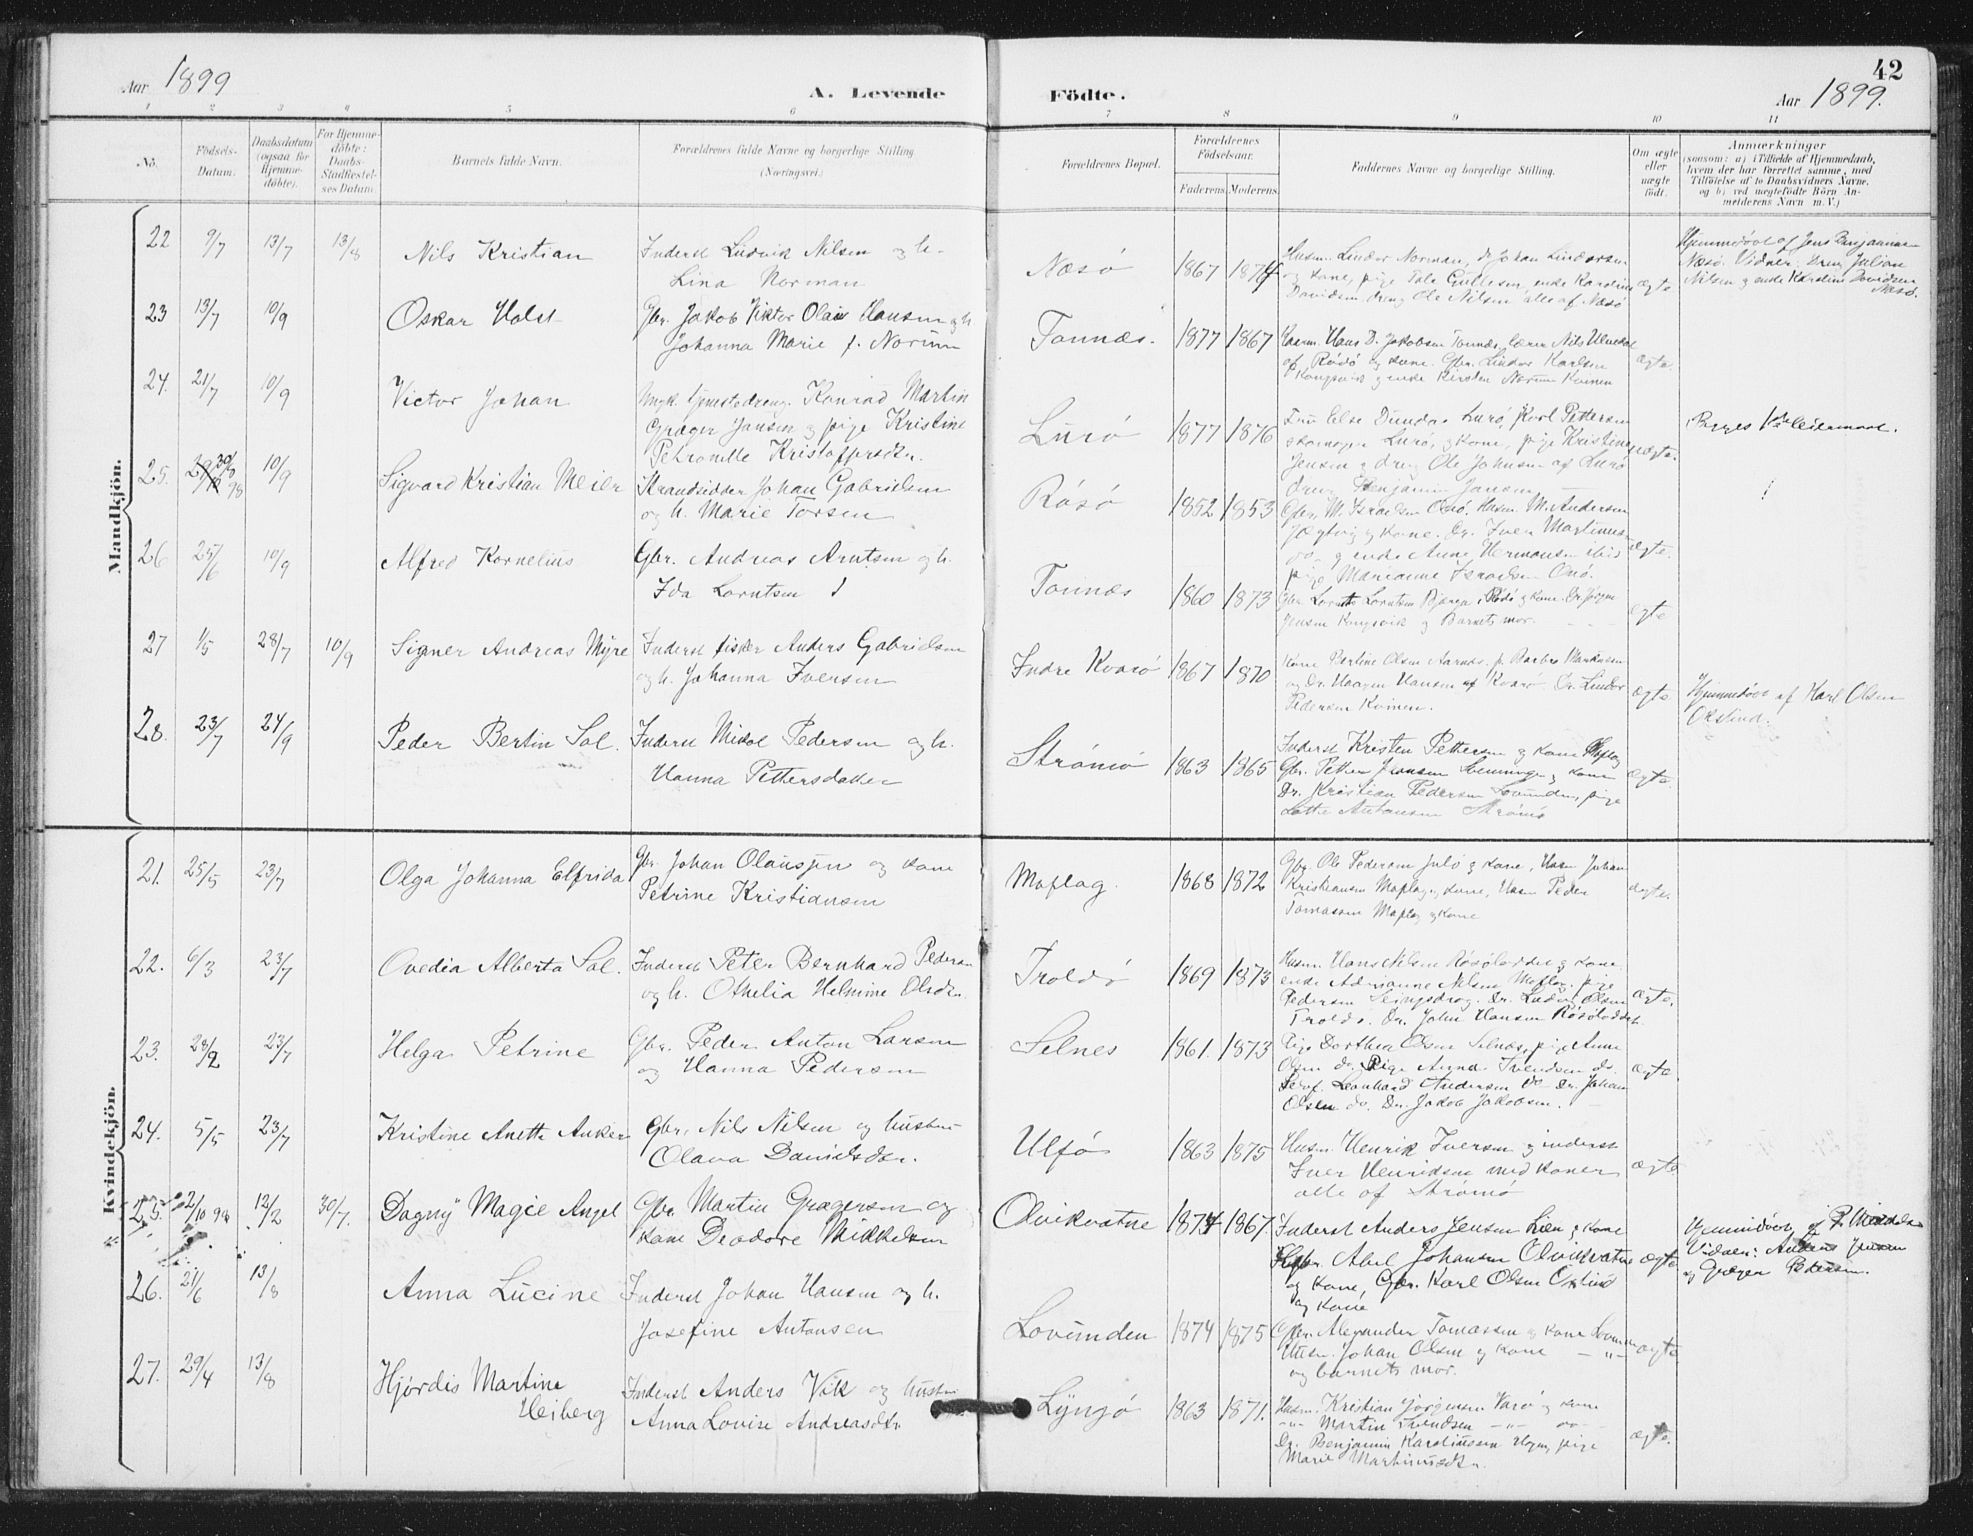 42
Aar 1899
A. Levende
Födte.
Aar 1899.
1 2 3 4 5 6 7 8 9 10 11
No.
Födsels-Datum.
Daabsdatum (ogsaa for Hjemme-döbte).
For Hjemme-döbte: Daabs-Stadfæstel-ses Datum.
Barnets fulde Navn.
Forældrenes fulde Navne og borgerlige Stilling.
(Næringsvei.)
Forældrenes Bopæl.
Forældrenes Födselsaar.
Faderens
Moderens
Faddernes Navne og borgerlige Stilling.
Om ægte eller uægte födt.
Anmærkninger
(saasom: a) i Tilfælde af Hjemmedaab,
hvem der har forrettet samme, med
Tilföielse af to Daabsvidners Navne.
og b) ved uægtefödte Börn An-
melderens Navn m. V.)
Mandkjön.
22 9/7 13/7 13/8 Nils Kristian
Inderst Ludvik Nilsen og h.
Lina Norman
Næsö 1867 1874
Husm. Lindor Norman, dr Johan Lindorsen
og kone, pige Tale Gullesen, enke Karoline
Davidsen dreng Ole Nilsen alle af Næsö
ægte
Hjemmedöbt af Jens Benjaminsen
Næsö. Vidner: dreng Julian
Nilsen og enke Karoline Davidsen
Næsö.
23 13/7 10/9 Oskar Holst
Gbr. Jakob Viktor Olaus Hansen og h
Johanna Marie f. Norum
Tonnæs. 1877 1867
Hans D. Jakobsen Tonnæs, lærer Nils
af Rödö og kone. Gbr. Lindor Karlsen
Kongsvik og enke Kirsten Norum Kvinen
ægte.
24. 21/7 10/9 Victor Johan
Ungk. tjenestedreng. Konrad Martin
Græger Jansen og pige Kristine
Petronelle Kristoffersdtr.
Lurö 1877 1876
Fru Else Dundas Lurö, Karl Pettersen
skomager Lurö, og kone, pige Kristine
Jensen og dreng Ole Johnsen af Lurö
dreng Benjamin Jansen
uægte.
Begges 1ste leiermaal.
25. 30/9 98 10/9 Sigvard Kristian Meier
Strandsidder Johan Gabrielsen
og h. Marie Torsen
Rösö 1852 1853
Gbr. M. Israelsen Onö. Husm. M. Andersen
Jægtvig og kone. Dr. Iver Martinus
do og enke Anne Hermansen ibid
pige Marianne Israelsen Onö.
ægte.
26 25/6 10/9 Alfred Kornelius
Gbr. Andreas Arntsen og h.
Ida Lorntsen
Tonnæs 1860 1873
Gbr. Lornts Lorntsen i Rödö og kone. Dr. Jörgen
Jensen Kongsvik og Barnets mor.
ægte
27 1/5 28/7 10/9 Signer Andreas Myre
Inderst fisker Anders Gabrielsen
og h. Johanna Iversen
Indre Kvarö 1867 1870
Kone Bertine Olsen Aarnes. p. Barbro Markusen
og Dr. Haagen Hansen af Kvarö. Dr. Lindor
Pedersen Kvinen.
ægte
Hjemmedöbt af Karl Olsen
Okstind.
28. 23/7 24/9 Peder Bertin Sol.
Inderst Nikol Pedersen og h.
Hanna Pettersdatter
Strömö 1863 1865
Inderst Kristen Pettersen og kone Moflag
Gbr. Petter Jransen og kone
Dr. Kristian Pedersen Lovunden, pige
Lotte Antonsen Strömö
ægte.
Kvindekjön.
21. 25/5 23/7 Olga Johanna Elfrida
Gbr. Johan Olaussen og kone
Petrine Kristiansen
Moflag. 1868 1872
Gbr Ole Pedersen Sulö og kone, Hasn Johan
Kristiansen Moflag og kone, Hasn Peder
Tomassen Moflag og kone
ægte.
22. 6/3 23/7 Ovedia Alberta Sol.
Inderst Peter Bernhard Pedersen
og h. Othelia Helmine Olsdtr.
Troldö 1869 1873
Husm. Hans Nilsen Rösöladdet og kone
enke Adrianne Nilsen Moflag, pige
Pedersen Dr. Ludvig Olsen
Troldö. Dr. John Hansen Rösöladdet.
ægte.
23. 28/2 23/7 Helga Petrine
Gbr. Peder Anton Larsen
og Hanna Pedersen
Selnes 1861. 1873
Pige Dorthea Olsen Selnæs, pige Anne
Olsen do. Pige Anna Svendsen do.
Leonhard Andersen do Dr. Johan
Olsen do. Dr. Jakob Jakobsen.
ægte.
24. 5/5 23/7 Kristine Anette Anker
Gbr. Nils Nilsen og hustru
Olava Danielsdtr.
Ulfö 1863 1875
Husm. Henrik Iversen og inderst
Iver Henriksen med koner
alle af Strömö
ægte
25. 2/10 98 12/2 30/7. Dagny Magce Angel
Gbr. Martin Grægersen og
kone Deodore Mikkelsen
Olvikvatne 1874 1867.
Inderst Anders Jensen Lien og kone
Gbr. Abel Johansen Olvikvatne
og kone, Gbr. Karl Olsen Okstind
og kone
ægte
Hjemmedöbt af P.
Vidner: Anders Jensen
og Græger Pedersen.
26. 21/6 13/8 Anna Lucine
Inderst Johan Hansen og h.
Josefine Antonsen
Lovunden 1874 1875
Gbr. Alexander Tomassen og kone Lovunden
Husm. Johan Olsen og kone — " —
og barnets mor.
ægte
27. 29/4 13/8 Hjördis Martine
Heiberg
Inderst Anders Vik og hustru
Anna Lovise Andreasdtr
Lyngö 1863 1871.
Husm. Kristian Jörgensen Varö og kone
— " — Martin Svendsen — " — do
Dr. Benjamin Karoliussen Hogen, pige
Marie Martinusdtr.
ægte.